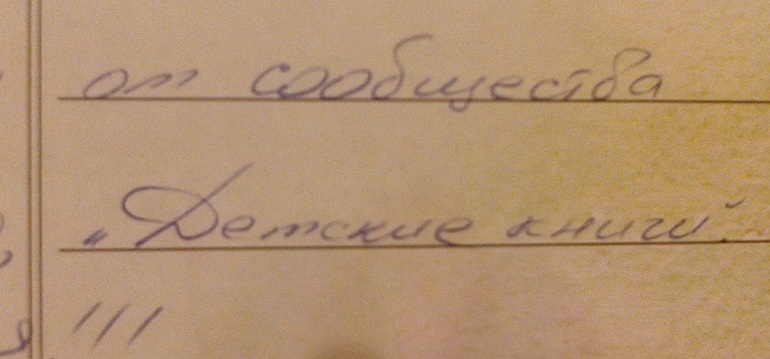 от сообщества
„Детские книги".